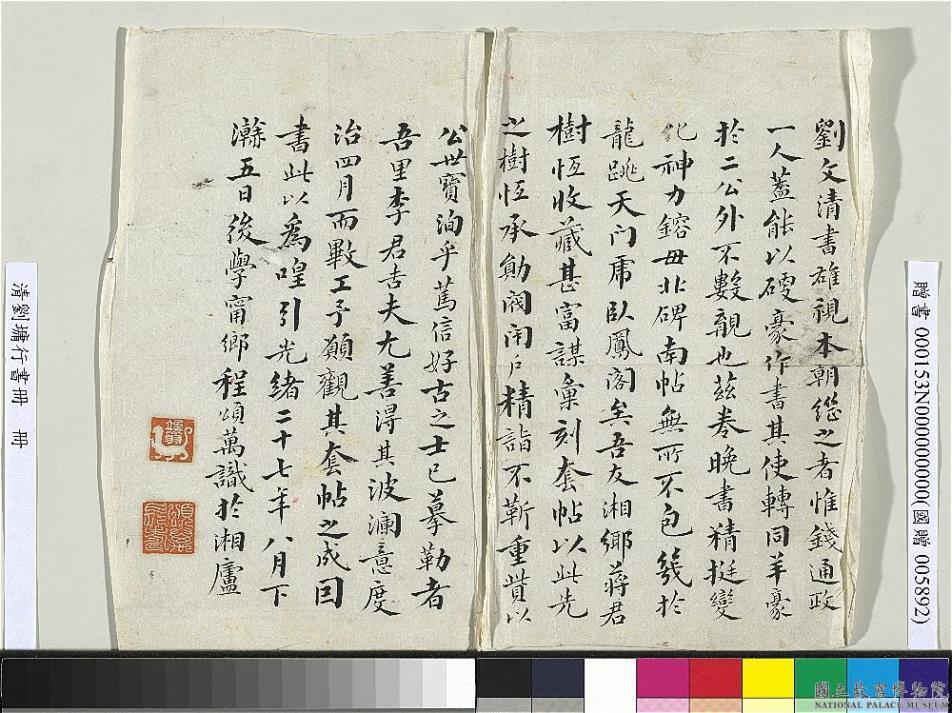 劉文清書雄視本朝繼之者惟錢通政
一人蓋能以硬豪作書其使轉同羊豪
於二公外不數覯也茲卷晚書精挺變
化神力鎔毋北碑南帖無所不包幾於
龍跳天门虎臥鳳閣矣吾友湘鄉蔣君
樹恆收藏甚富謀彙刻套帖以此先
之樹恆承勛閥闭户精詣不靳重貲以
公世寶洵乎篤信好古之士已摹勒者
吾里李君吉夫尤善得其波瀾意度
治四月而畢工予願觀其套帖之成因
書此以爲喤引光緒二十七年八月下
澣五日後學甯鄉程頌萬識於湘廬
頌萬
清劉墉行書冊 冊
贈書 000153N000000000(國贈 005892)
國立故宮博物院
NATIONAL PALACE MUSEUM